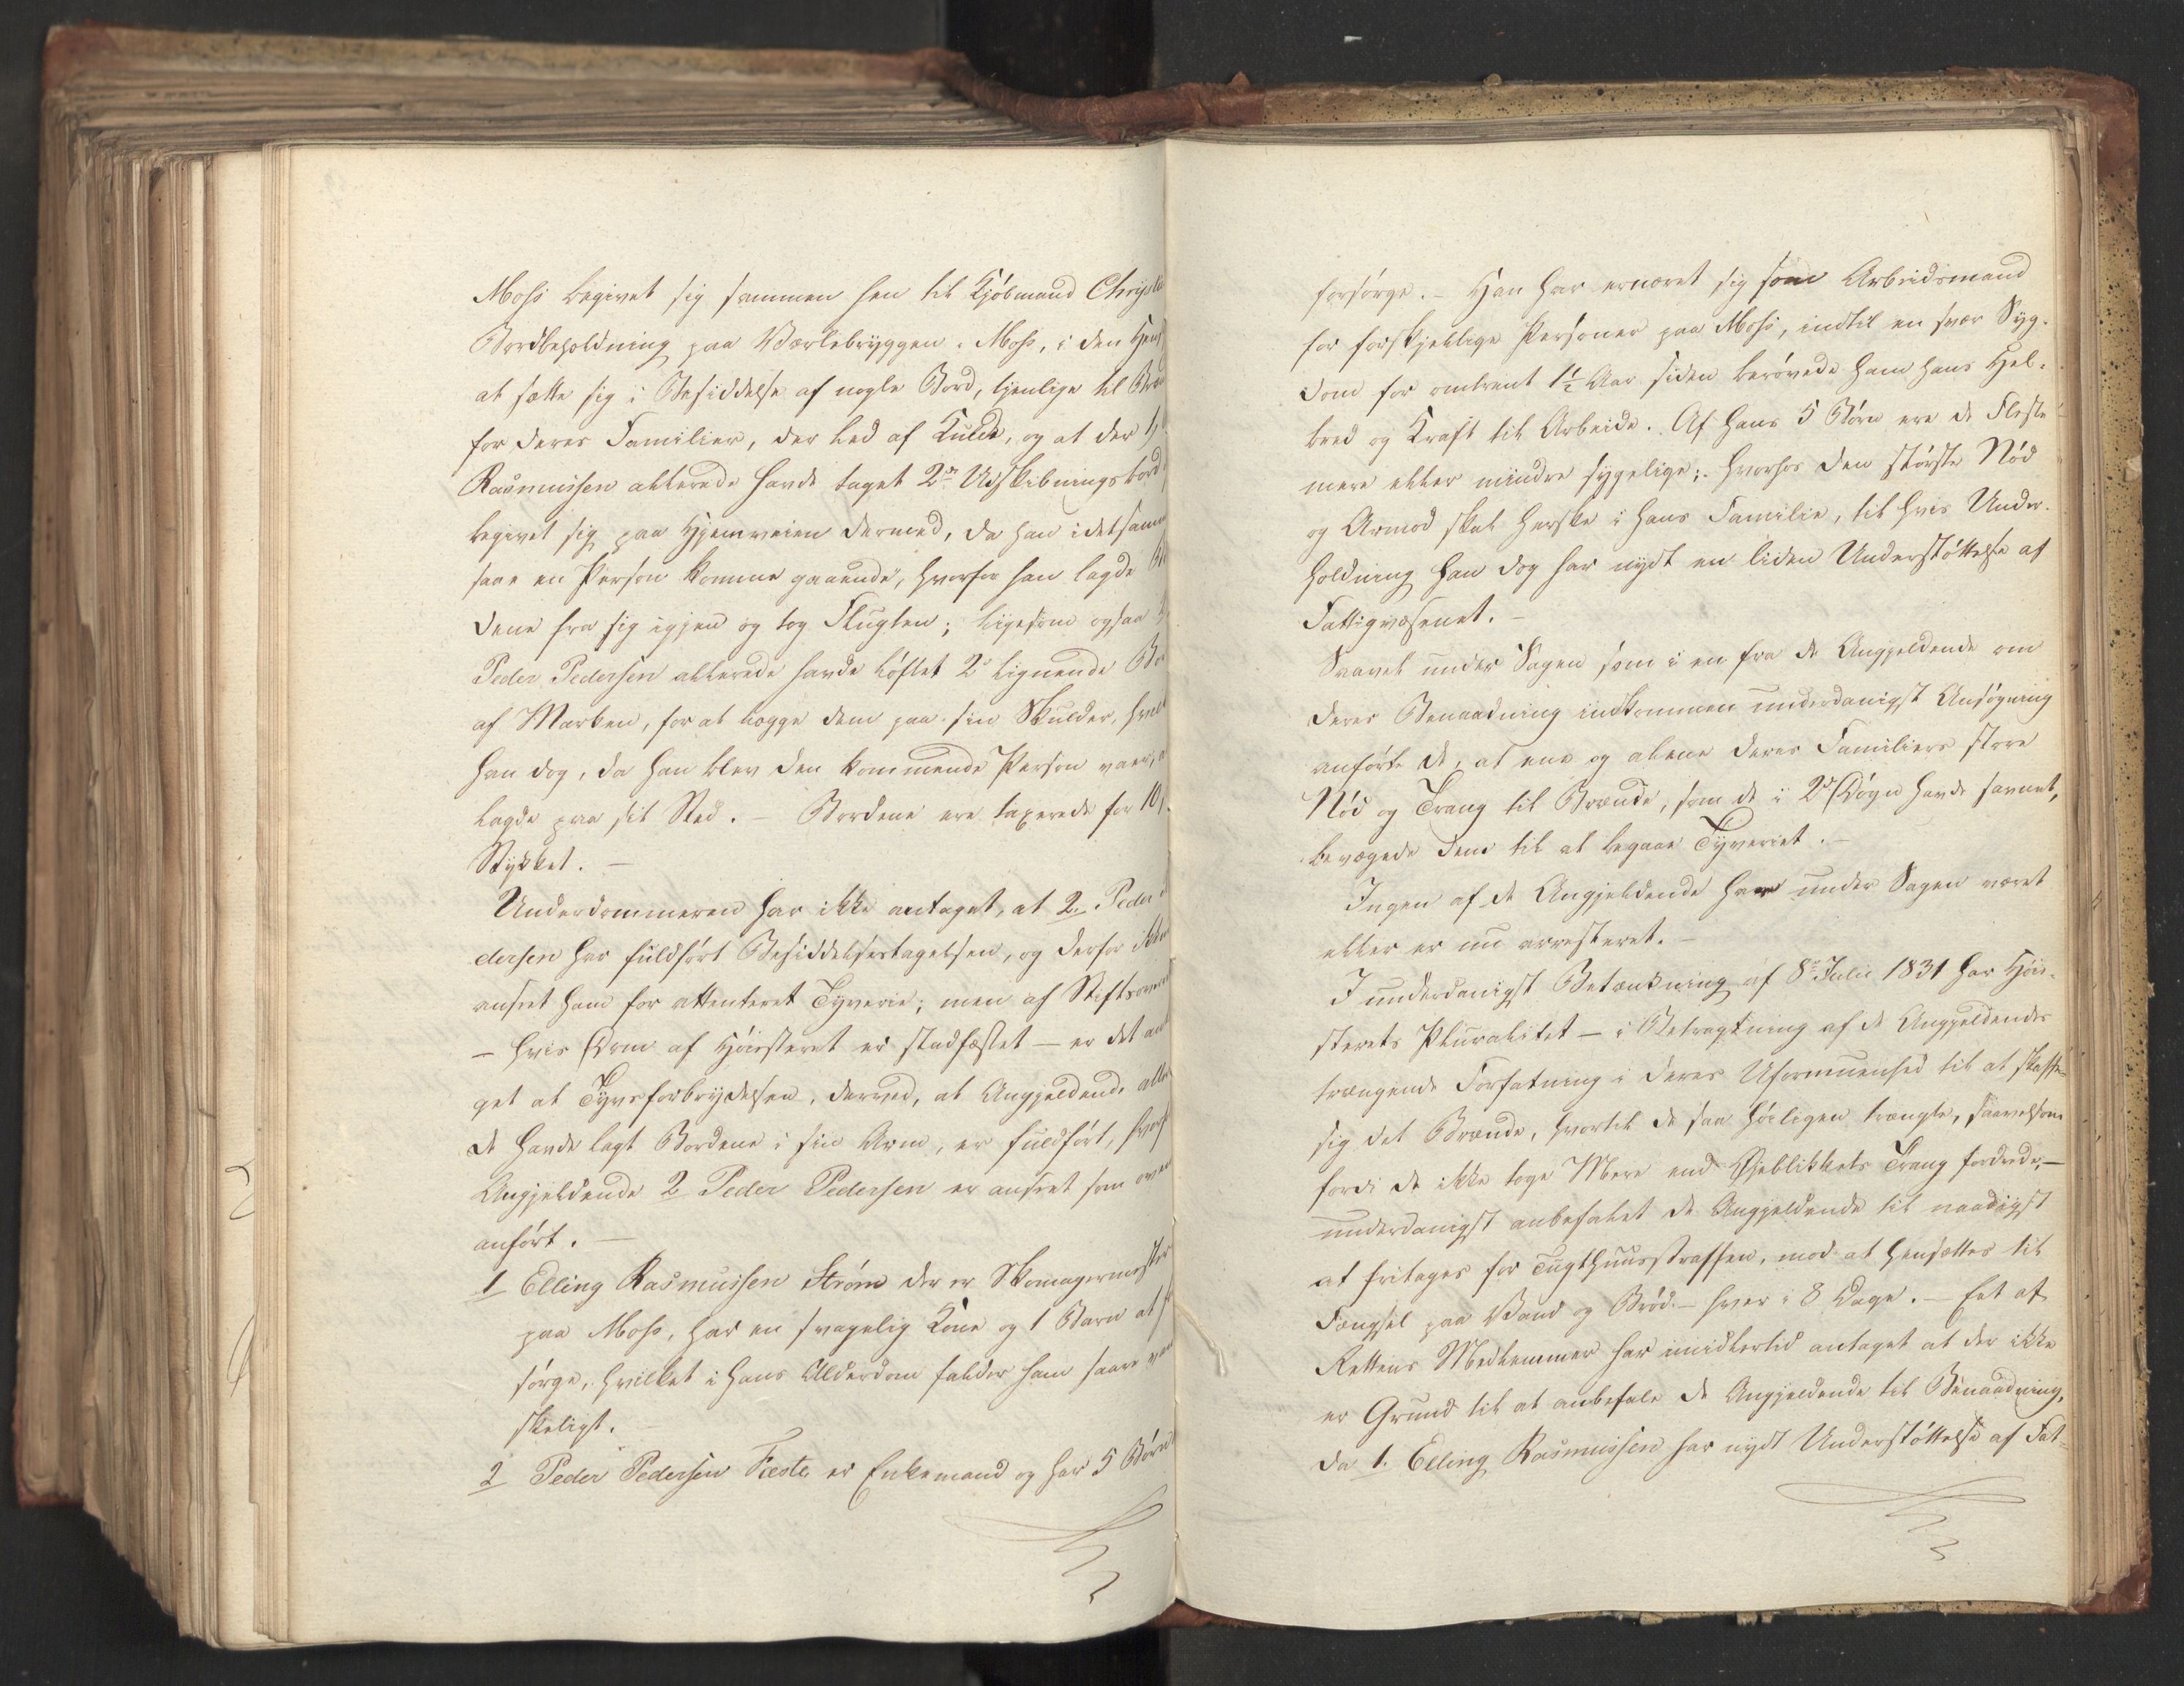 Moss begivet sig sammen hen til Kjöbmand Christi
Bordbeholdning paa Værlebryggen i Moss, i den Hens
at sætte sig i Besiddelse af nogle Bord, tjenlige til Bræn
for deres Familier, der led af Kulde, og at der 1,
Rasmussen allerede havde taget 2de Udskibningsbord,
begivet sig paa Hjemveien dermed, da han idetsamme
saae en Person komme gaaende, hvorfor han lagde Bor
dene fra sig igjen og tog Flugten; ligesom ogsaa 2
Peder Pedersen allerede havde löftet 2de lignende Bor
af Marken, for at lægge dem paa sin Skulder, hvilk
han dog, da han blev den kommende Person vaer,
lagde paa sit Sted. – Bordene ere taxerede for 10
Stykket. –
Underdommeren har ikke antaget, at 2. Peder
dersen har fuldfört Besiddelsestagelsen, og derfor ikkun
anseet ham for attenteret Tyverie; men af Stiftsover
– hvis Dom af Höiesteret er stadfæstet – er det an
get at Tyvsforbrydelsen, derved, at Angjeldende alle
de havde lagt Bordene i sin Arm, er fuldfört, hvorf
Angjeldende 2 Peder Pedersen er anseet som oven
anfört. –
1 Elling Rasmussen Strøm der er Skomagermester
paa Moss, har en svagelig Kone og 1 Barn at f
sörge, hvilket i hans Alderdom falder ham saare van
skeligt. –
2 Peder Pedersen Fæste er Enkemand og har 5 Börn
forsörge. – Han har ernæret sig som Arbeidsmand
for forskjellige Personer paa Moss, indtil en svær Syg-
dom for omtrent 1½ Aar siden berövede ham hans Hel-
bred og Kraft til Arbeide. Af hans 5 Börn ere de Fleste
mere eller mindre sygelige; hvorhos den störste Nöd
og Armod skal herske i hans Familie, til hvis Under-
holdning han dog har nydt en liden Understöttelse af
Fattigvæsenet. –
Saavel under Sagen som i en fra de Angjeldende om
deres Benaadning indkommen underdanigst Ansögning
anförte de, at ene og alene deres Familiers store
Nöd og Trang til Brænde, som de i 2de Dögn havde savnet,
bevægede dem til at begaae Tyveriet. –
Ingen af de Angjeldende har under Sagen været
eller er nu arresteret. –
I underdanigst Betænkning af 8de Julii 1831 har Höie-
sterets Pluralitet – i Betragtning af de Angjeldendes
trængende Forfatning i deres Uformuenhed til at skaffe
sig det Brænde, hvortil de saa höiligen trængte, saavelsom
fordi de ikke toge Mere end Øieblikkets Trang fordrede, –
underdanigst anbefalet de Angjeldende til naadigst
at fritages for Tugthuusstraffen, mod at hensættes til
Fængsel paa Vand og Bröd – hver i 8 Dage. – Eet af
Rettens Medlemmer har imidlertid antaget at der ikke
er Grund til at anbefale de Angjeldende til Benaadning,
da 1. Elling Rasmussen har nydt Understöttelse af Fat-